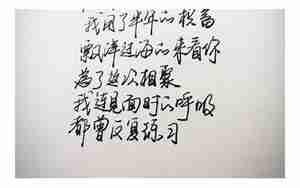 我用了半年的积蓄
飘洋过海的来看你
为了这次相聚
我连见面时的呼吸
都曾反复练习